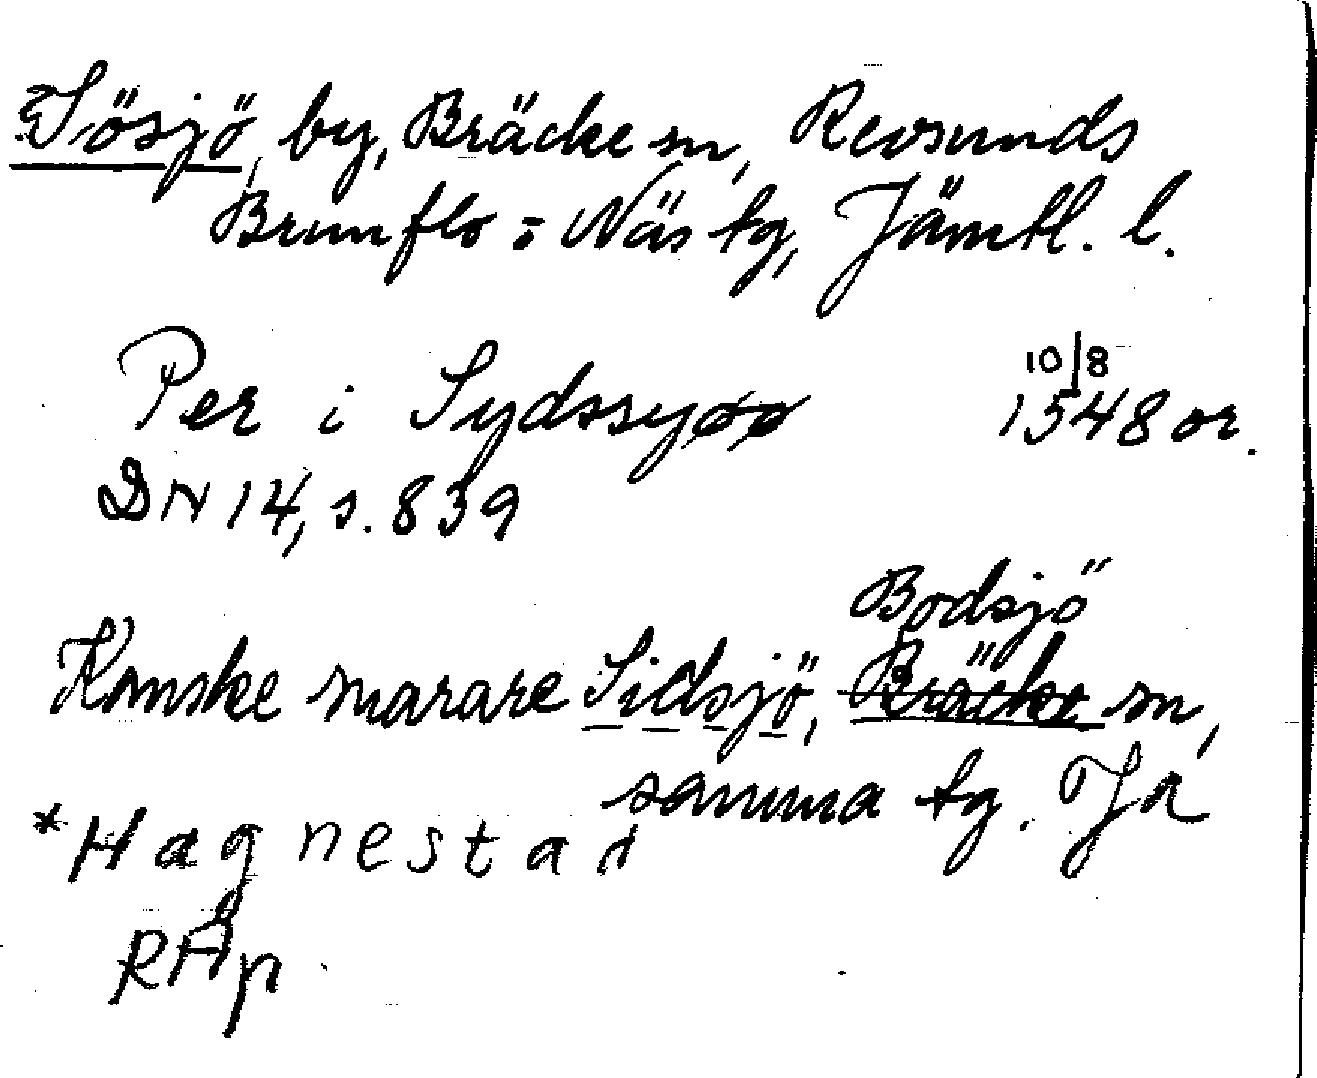 Sösjö, by, Bräcke sn, Revsunds
Brunflo o Näs tg, Jämtl. l.
Per i Sydssyøø 10/8 1548 or.
DN 14, s. 839
Kanske snarare Sidsjö, Bräcke Bodsjö sn,
samma tg. Ja
*Hagnestad
RÄp